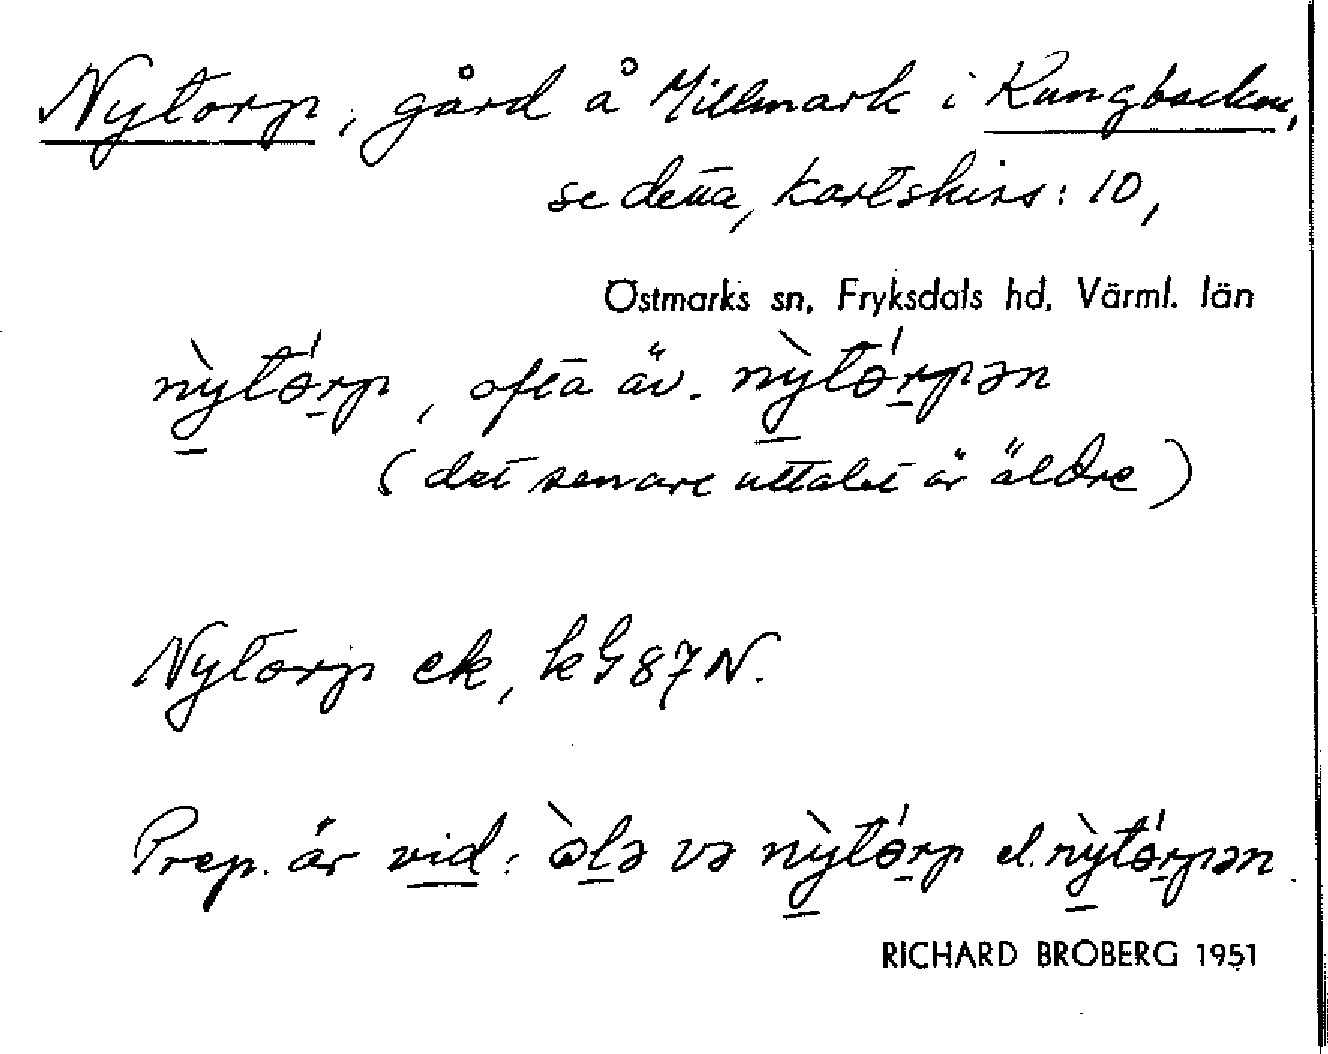 Nytorp, gård å Millmark i Rungbacken,
se detta, kartskiss: 10,
Östmarks sn, Fryksdals hd, Värml. län
nỳtó̱rp, ofta äv. nỳtó̱rpən
(det senare uttalet är äldre)
Nytorp ek, kG 87 N.
Prep. är vid: və nỳtó̱rp el. nỳtó̱rpən
RICHARD BROBERG 1951